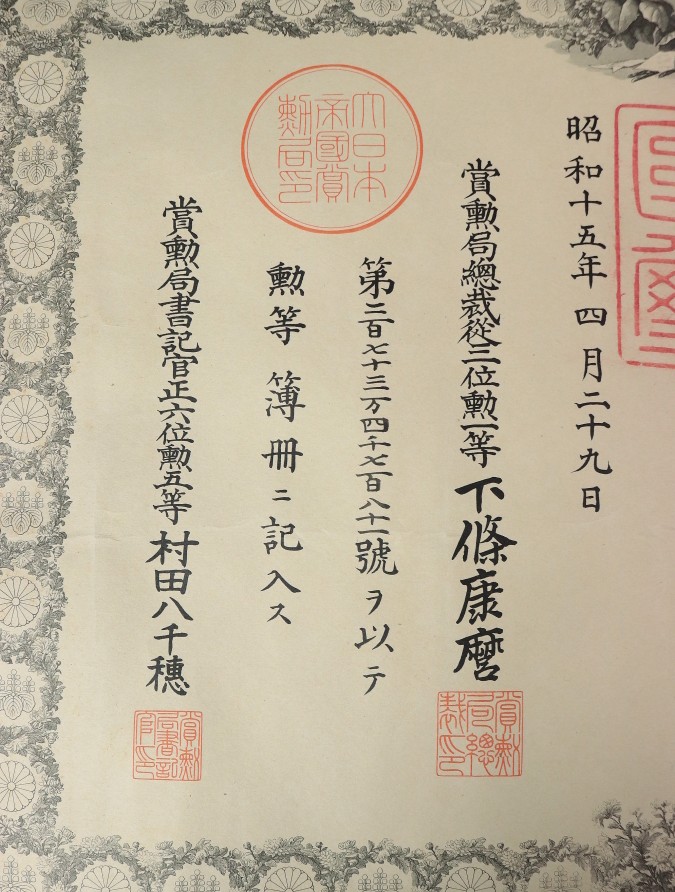 昭和十五年四月二十九日
賞勲局總裁從三位勲一等下條康麿
賞勲
局總
裁印
大日本
帝國賞
勲局印
第二百七十三万四千七百八十一號ヲ以テ
勲等簿冊ニ記入ス
賞勲局書記官正六位勲五等村田八千穗
賞勲
局書記
官印